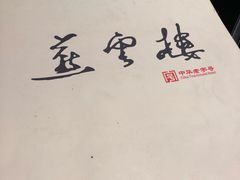 燕雲楼
中华老字号
China Time-honored Brand